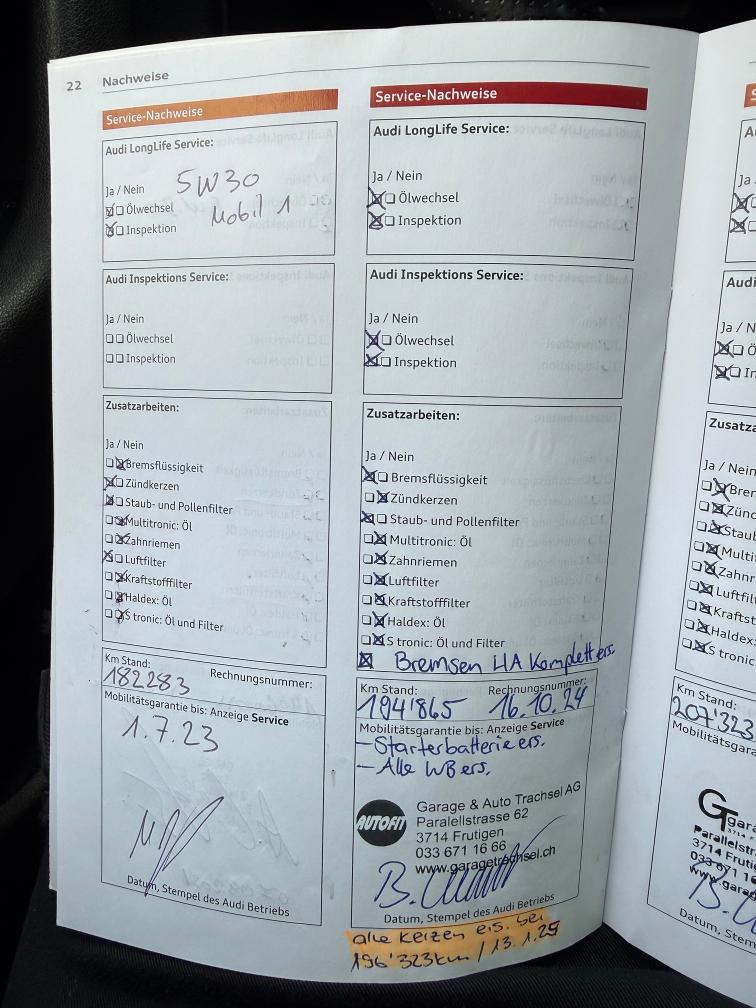 22 Nachweise
Service-Nachweise
Audi LongLife Service:
Ja / Nein
5W30
Ölwechsel
Mobil 1
Inspektion
Audi Inspektions Service:
Ja / Nein
Ölwechsel
Inspektion
Zusatzarbeiten:
Ja / Nein
Bremsflüssigkeit
Zündkerzen
Staub- und Pollenfilter
Multitronic: Öl
Zahnriemen
Luftfilter
Kraftstofffilter
Haldex: Öl
S tronic: Öl und Filter
Km Stand: Rechnungsnummer:
182283
Mobilitätsgarantie bis: Anzeige Service
1.7.23
Datum, Stempel des Audi Betriebs
Service-Nachweise
Audi LongLife Service:
Ja / Nein
Ölwechsel
Inspektion
Audi Inspektions Service:
Ja / Nein
Ölwechsel
Inspektion
Zusatzarbeiten:
Ja / Nein
Bremsflüssigkeit
Zündkerzen
Staub- und Pollenfilter
Multitronic: Öl
Zahnriemen
Luftfilter
Kraftstofffilter
Haldex: Öl
S tronic: Öl und Filter
Bremsen HA Komplett ers.
Km Stand: Rechnungsnummer:
194'865 16.10.24
Mobilitätsgarantie bis: Anzeige Service
- Starterbatterie ers.
- Alle WB ers.
AUTOFIT
Garage & Auto Trachsel AG
Paralellstrasse 62
3714 Frutigen
033 671 16 66
www.garagetrachsel.ch
Datum, Stempel des Audi Betriebs
alle Kerzen ers. bei
196'323km / 13.1.25
S
A
Ja
Audi
Ja / N
Ö
In
Zusatza
Ja / Nein
Brem
Zünd
Staub
Multi
Zahnr
Luftfil
Kraftst
Haldex:
S tronic
Km Stand:
207'323
Mobilitätsga
GT gara
3714 F
Parallelstr
3714 Frutig
033 671 1
www.garag
Datum, Stem